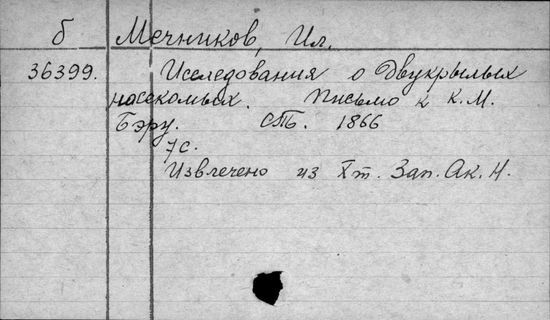 б Мечников, Ил.
36399. Исследования о Двукрылых
насекомых. Письмо к К.М.
Бэру. СПБ. 1866
7с.
Извлечено из Xт. Зап. Ак. Н.